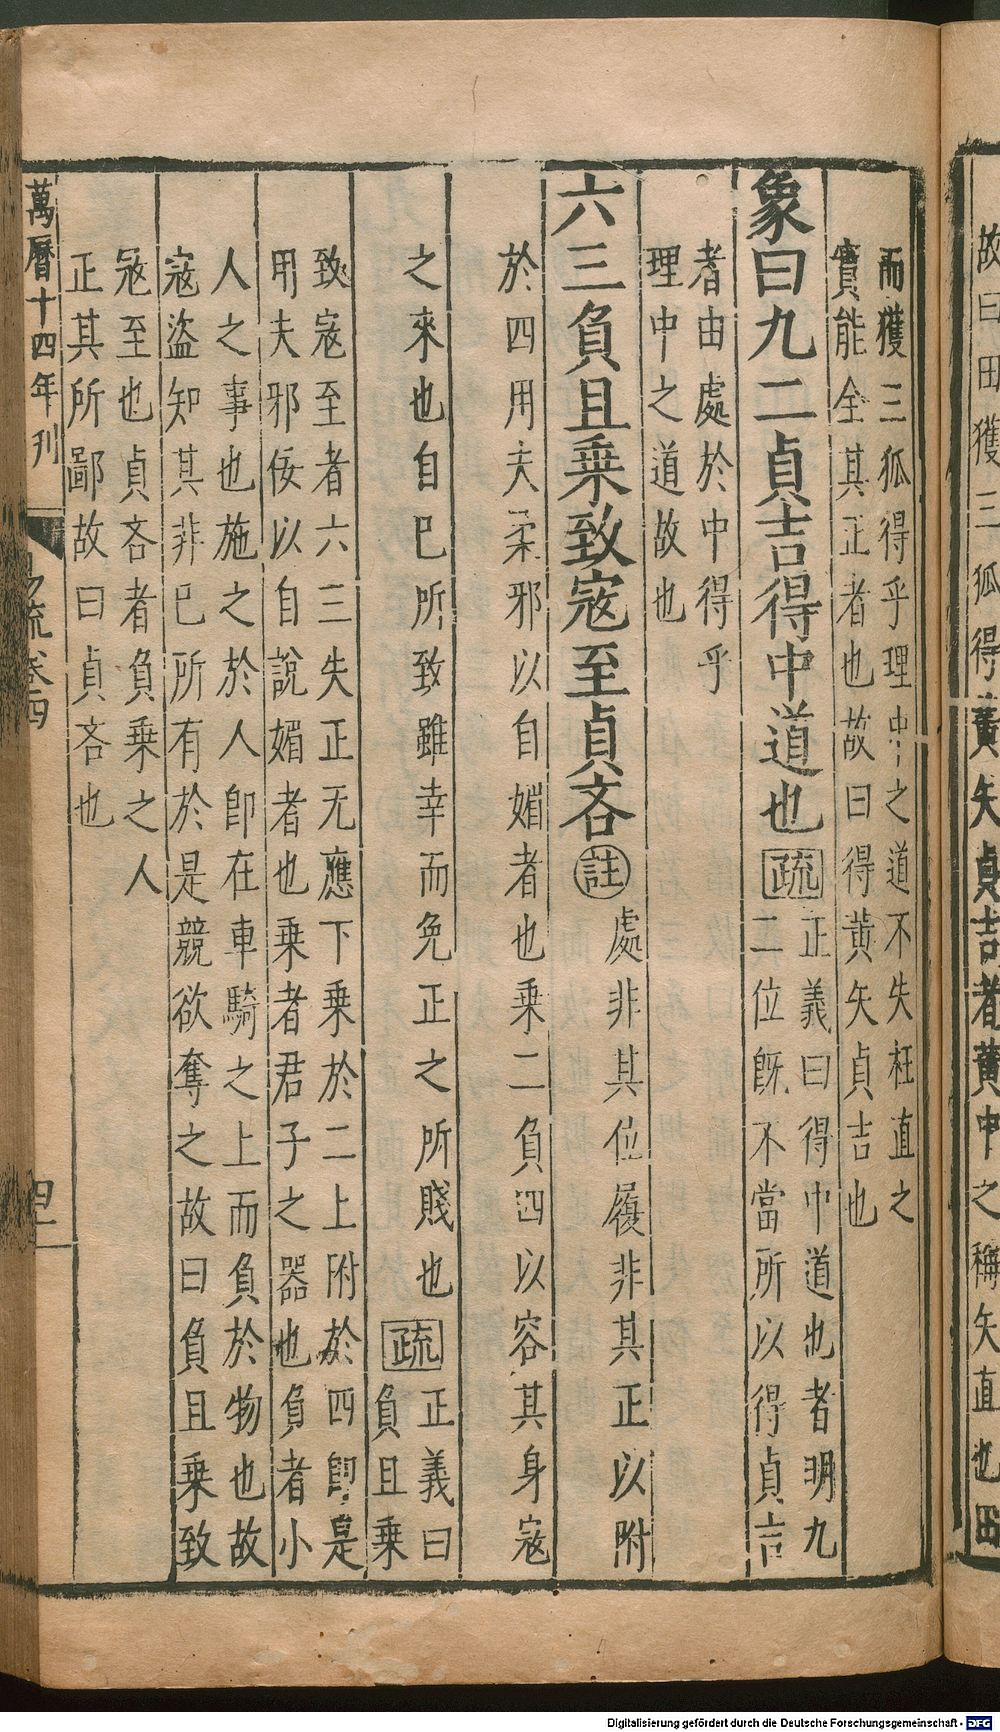 故曰田獲三狐得
黃矢貞吉者黃中之稱矢直也田
而獲三狐得乎理中之道不失枉直之
實能全其正者也故曰得黃矢貞吉也
象曰九二貞吉得中道也疏
正義曰得中道也者明九
二位旣不當所以得貞吉
者由處於中得乎
理中之道故也
六三負且乗致寇至貞吝註
處非其位履非其正以附
於四用夫柔邪以自媚者也乗二負四以容其身寇
之來也自巳所致雖幸而免正之所賤也疏
正義曰
負且乗
致寇至者六三失正无應下乗於二上附於四卽是
用夫邪佞以自說媚者也乗者君子之器也負者小
人之事也施之於人卽在車騎之上而負於物也故
寇盜知其非巳所有於是競欲奪之故曰負且乗致
寇至也貞吝者負乗之人
正其所鄙故曰貞吝也
萬曆十四年刊
易疏卷四
四二
Digitalisierung gefördert durch die Deutsche Forschungsgemeinschaft - DFG